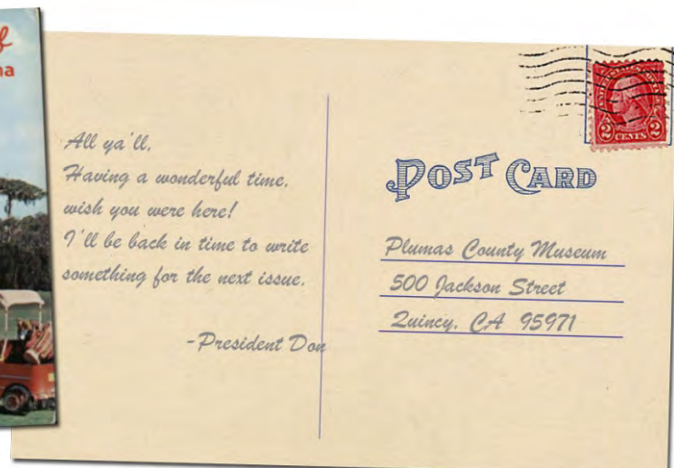 All ya'll,
Having a wonderful time,
wish you were here!
I'll be back in time to write
something for the next issue.
-President Don
POST CARD
Plumas County Museum
500 Jackson Street
Quincy, CA 95971
2 CENTS 2